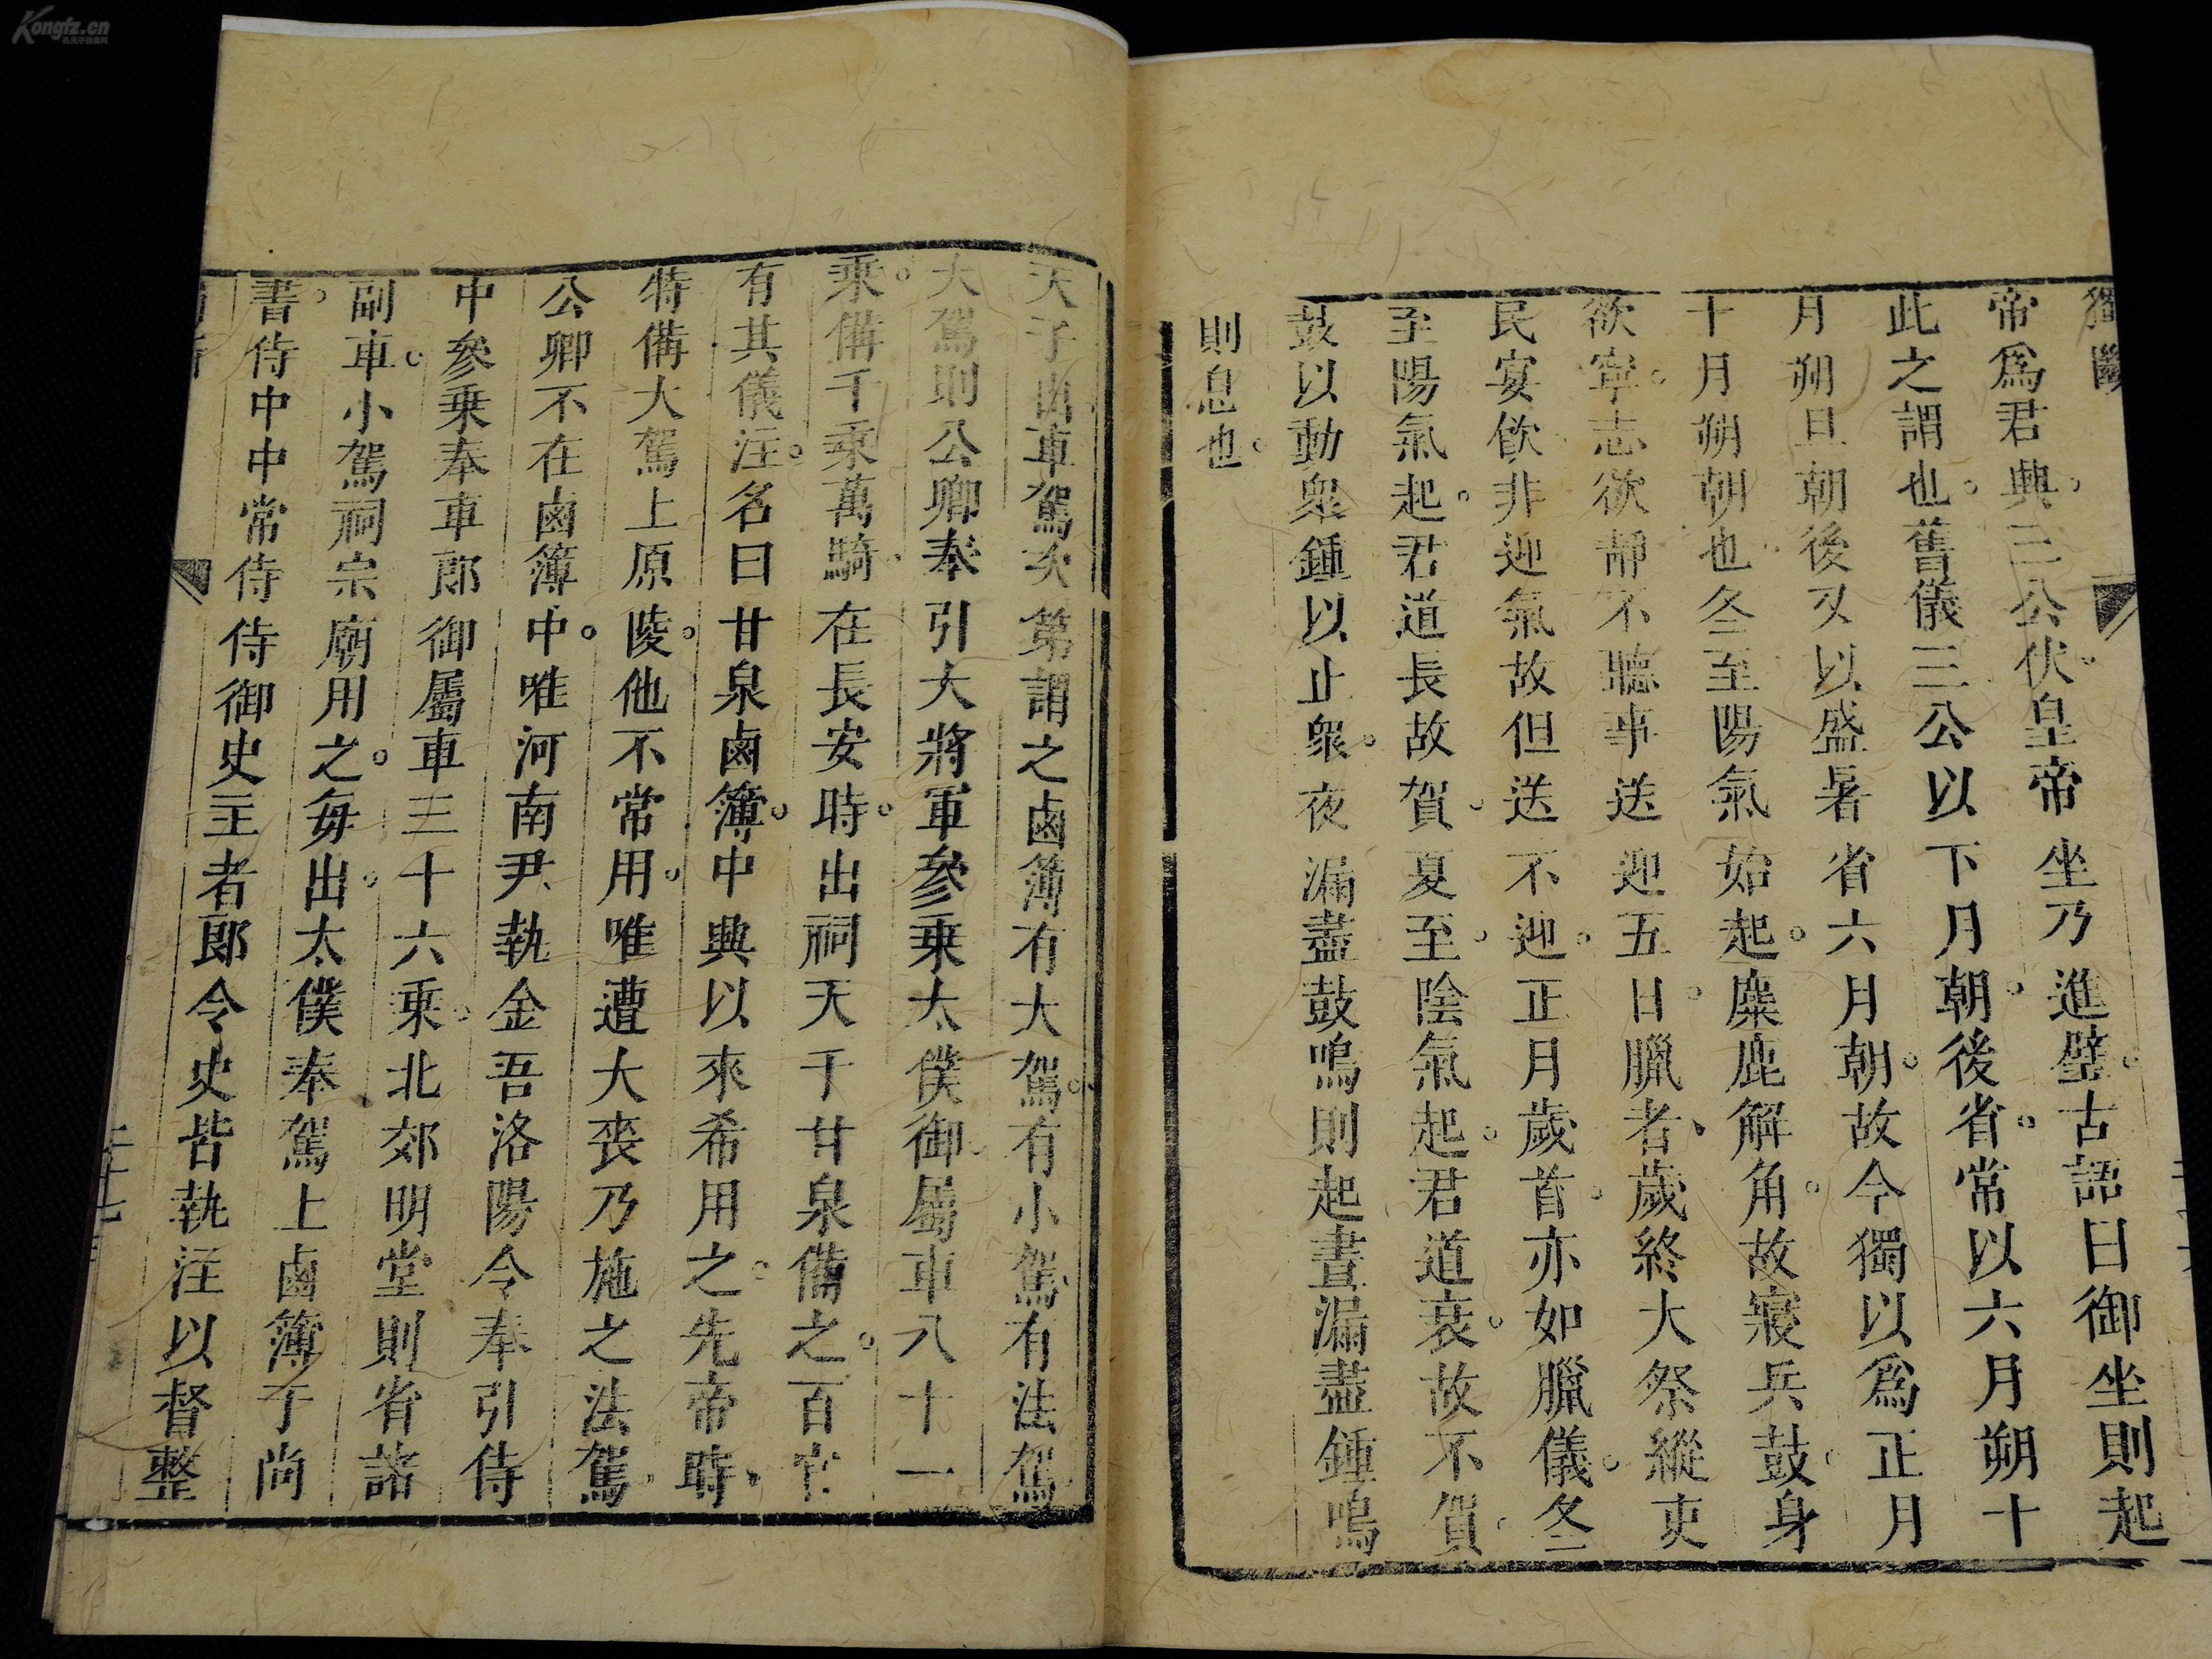 獨斷
帝爲君興三公伏皇帝坐乃進璧古語曰御坐則起
此之謂也舊儀三公以下月朝後省常以六月朔十
月朔旦朝後又以盛暑省六月朝故今獨以爲正月
十月朔朝也冬至陽氣始起麋鹿解角故寢兵鼓身
欲寧志欲靜不聽事送迎五日臘者歲終大祭縱吏
民宴飲非迎氣故但送不迎正月歲首亦如臘儀冬
至陽氣起君道長故賀夏至陰氣起君道衰故不賀
鼓以動衆鍾以止衆夜漏盡鼓鳴則起晝漏盡鍾鳴
則息也
天子出車駕次第謂之鹵簿有大駕有小駕有法駕
大駕則公卿奉引大將軍參乘太僕御屬車八十一
乘備千乘萬騎在長安時出祠天于甘泉備之百官
有其儀注名曰甘泉鹵簿中興以來希用之先帝時
特備大駕上原陵他不常用唯遭大喪乃施之法駕
公卿不在鹵簿中唯河南尹執金吾洛陽令奉引侍
中參乘奉車郎御屬車三十六乘北郊明堂則省諸
副車小駕祠宗廟用之每出太僕奉駕上鹵簿于尚
書侍中中常侍侍御史主者郎令史皆執注以督整
Kongfz.cn